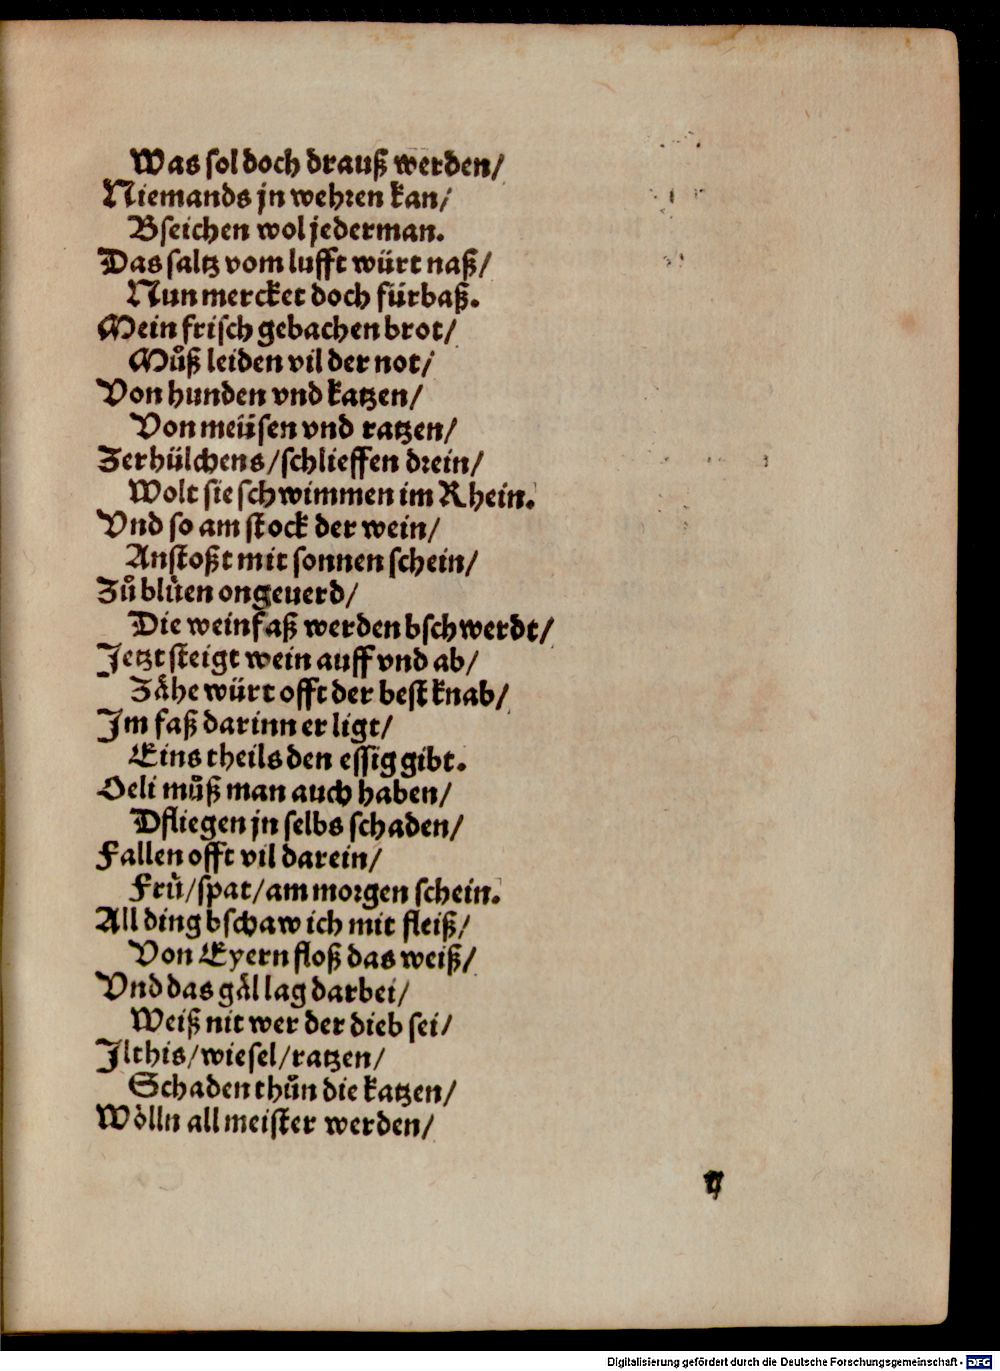 Was sol doch drauß werden/
Niemands jn wehren kan/
Bseichen wol jederman.
Das saltz vom lufft würt naß/
Nun mercket doch fürbaß.
Mein frisch gebachen brot/
Muͦß leiden vil der not/
Von hunden vnd katzen/
Von meüsen vnd ratzen/
Zerhülchens/schlieffen drein/
Wolt sie schwimmen im Rhein.
Vnd so am stock der wein/
Anstoßt mit sonnen schein/
Zuͦ bluͤen ongeuerd/
Die weinfaß werden bschwerdt/
Jetzt steigt wein auff vnd ab/
Zaͤhe würt offt der best knab/
Jm faß darinn er ligt/
Eins theils den essig gibt.
Oeli muͦß man auch haben/
Dfliegen jn selbs schaden/
Fallen offt vil darein/
Fruͤ/spat/am morgen schein.
All ding bschaw ich mit fleiß/
Von Eyern floß das weiß/
Vnd das gaͤl lag darbei/
Weiß nit wer der dieb sei/
Jlthis/wiesel/ratzen/
Schaden thuͦn die katzen/
Woͤlln all meister werden/
Digitalisierung gefördert durch die Deutsche Forschungsgemeinschaft - DFG